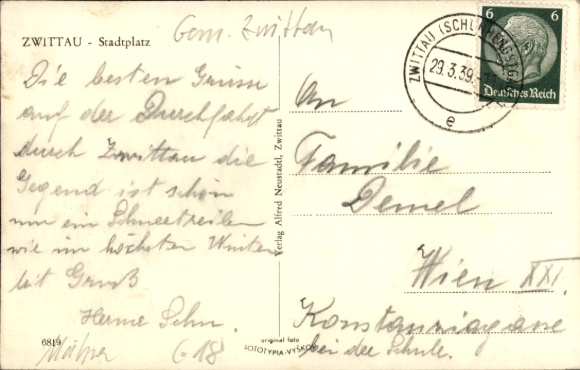 ZWITTAU - Stadtplatz
Gem. Zwittau
Die besten Grüsse
auf der Durchfahrt
durch Zwittau die
Gegend ist schön
nur ein Schneetreiben
wie im höchsten Winter
Gruß
6819
G 18
Verlag Alfred Neustadtl, Zwittau
original foto
FOTOTYPIA-VYŠKOV
ZWITTAU
29.3.39
e
6 6
Deutsches Reich
An
Familie
Demel
Wien XXI.
Konstanziagasse
bei der Schule.